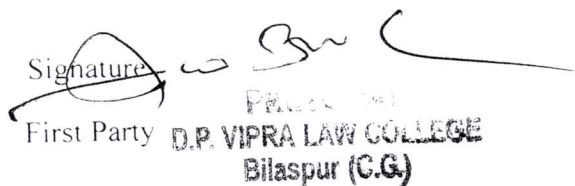 Signature
First Party D.P. VIPRA LAW COLLEGE
Bilaspur (C.G.)